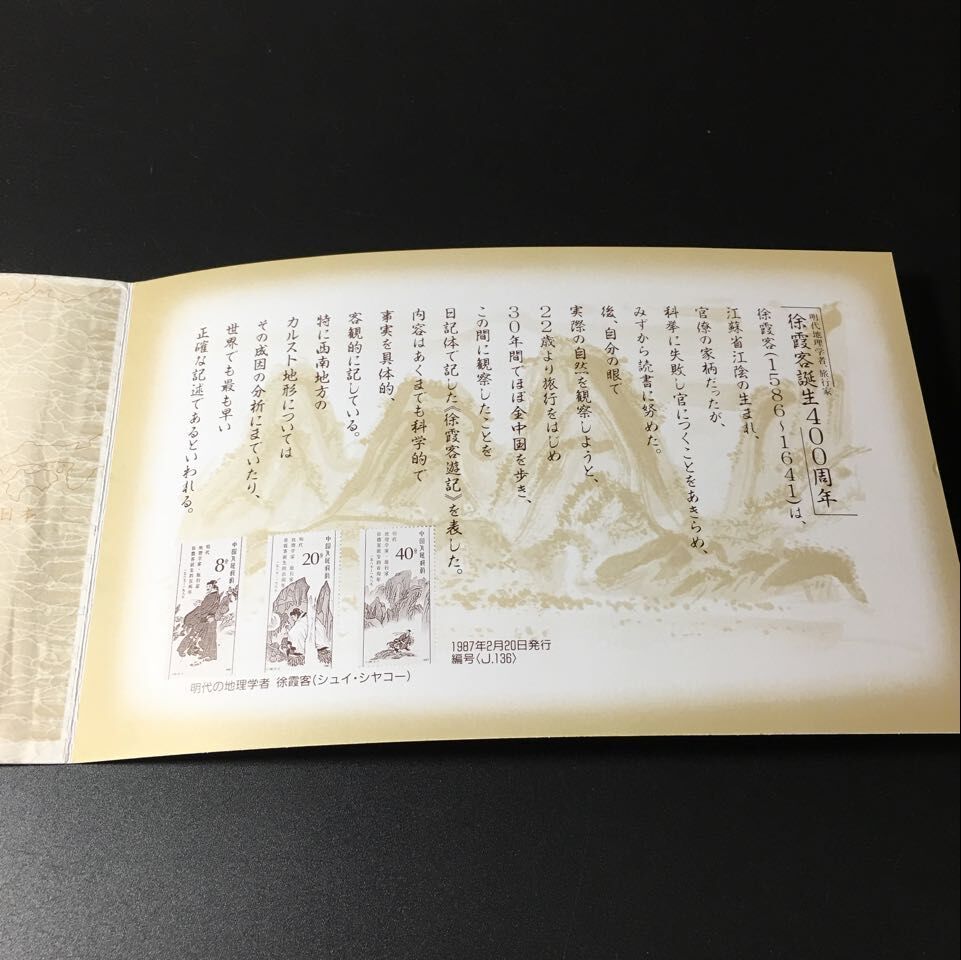 明代地理学者 旅行家
徐霞客誕生400周年
徐霞客(1586~1641)は、
江蘇省江陰の生まれ、
官僚の家柄だったが、
科挙に失敗し官につくことをあきらめ、
みずから読書に努めた。
後、自分の眼で
実際の自然を観察しようと、
22歳より旅行をはじめ
30年間でほぼ全中国を歩き、
この間に観察したことを
日記体で記した《徐霞客遊記》を表した。
内容はあくまでも科学的で
事実を具体的、
客観的に記している。
特に西南地方の
カルスト地形については
その成因の分析にまでいたり、
世界でも最も早い
正確な記述であるといわれる。
中国人民邮政
40分
明代
地理学家、旅行家
徐霞客诞生四百周年
中国人民邮政
20分
明代
地理学家、旅行家
徐霞客诞生四百周年
中国人民邮政
8分
明代
地理学家、旅行家
徐霞客诞生四百周年
1987年2月20日発行
編号〈J.136〉
明代の地理学者 徐霞客(シュイ・シヤコー)